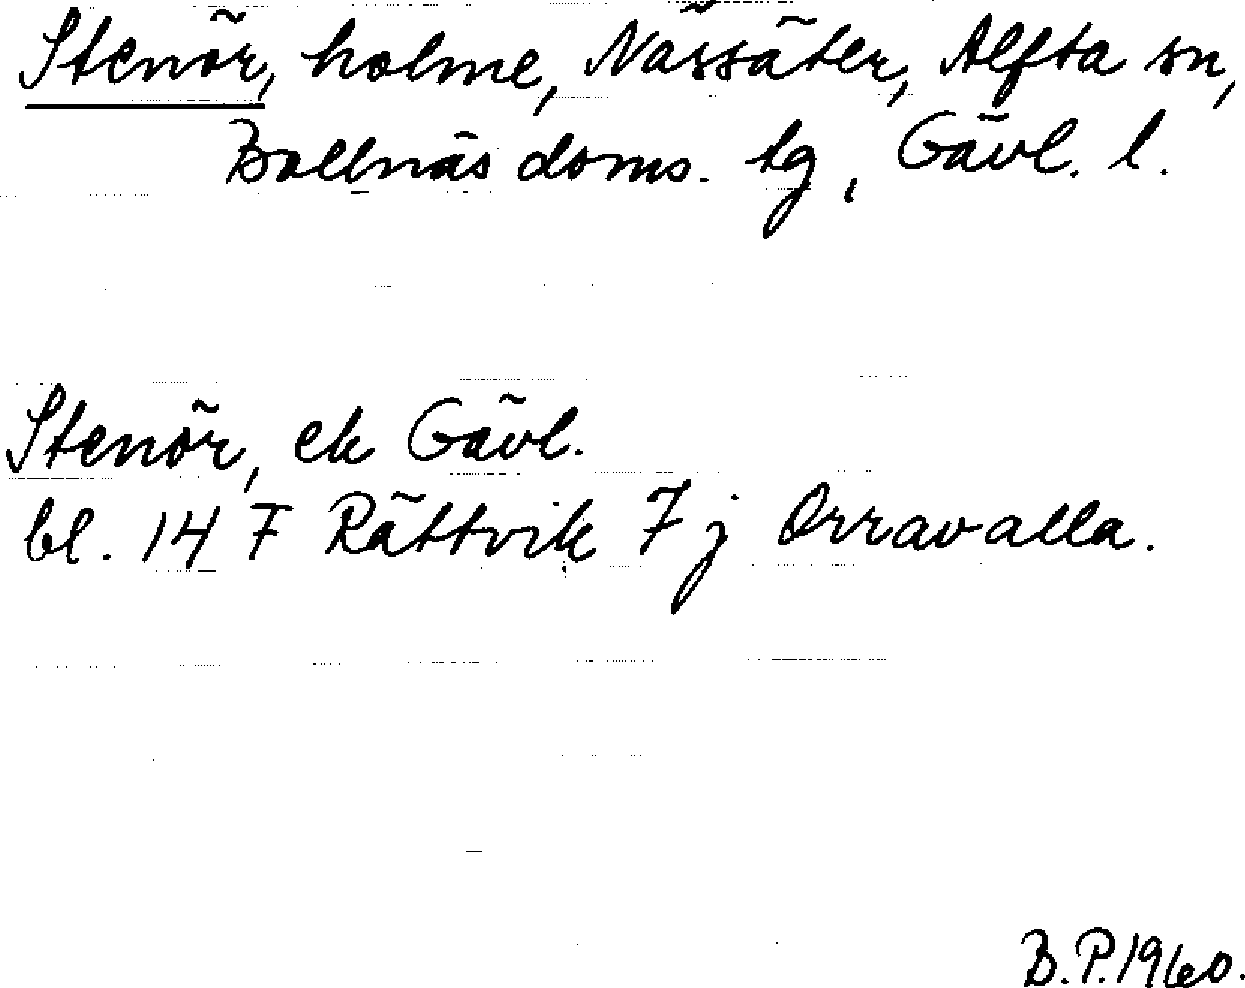 Stenör, holme, Nässäter, Alfta sn,
Bollnäs doms. tg, Gävl. l.
Stenör, ek Gävl.
bl. 14 F Rättvik 7 j Orravalla.
B.P.1960.